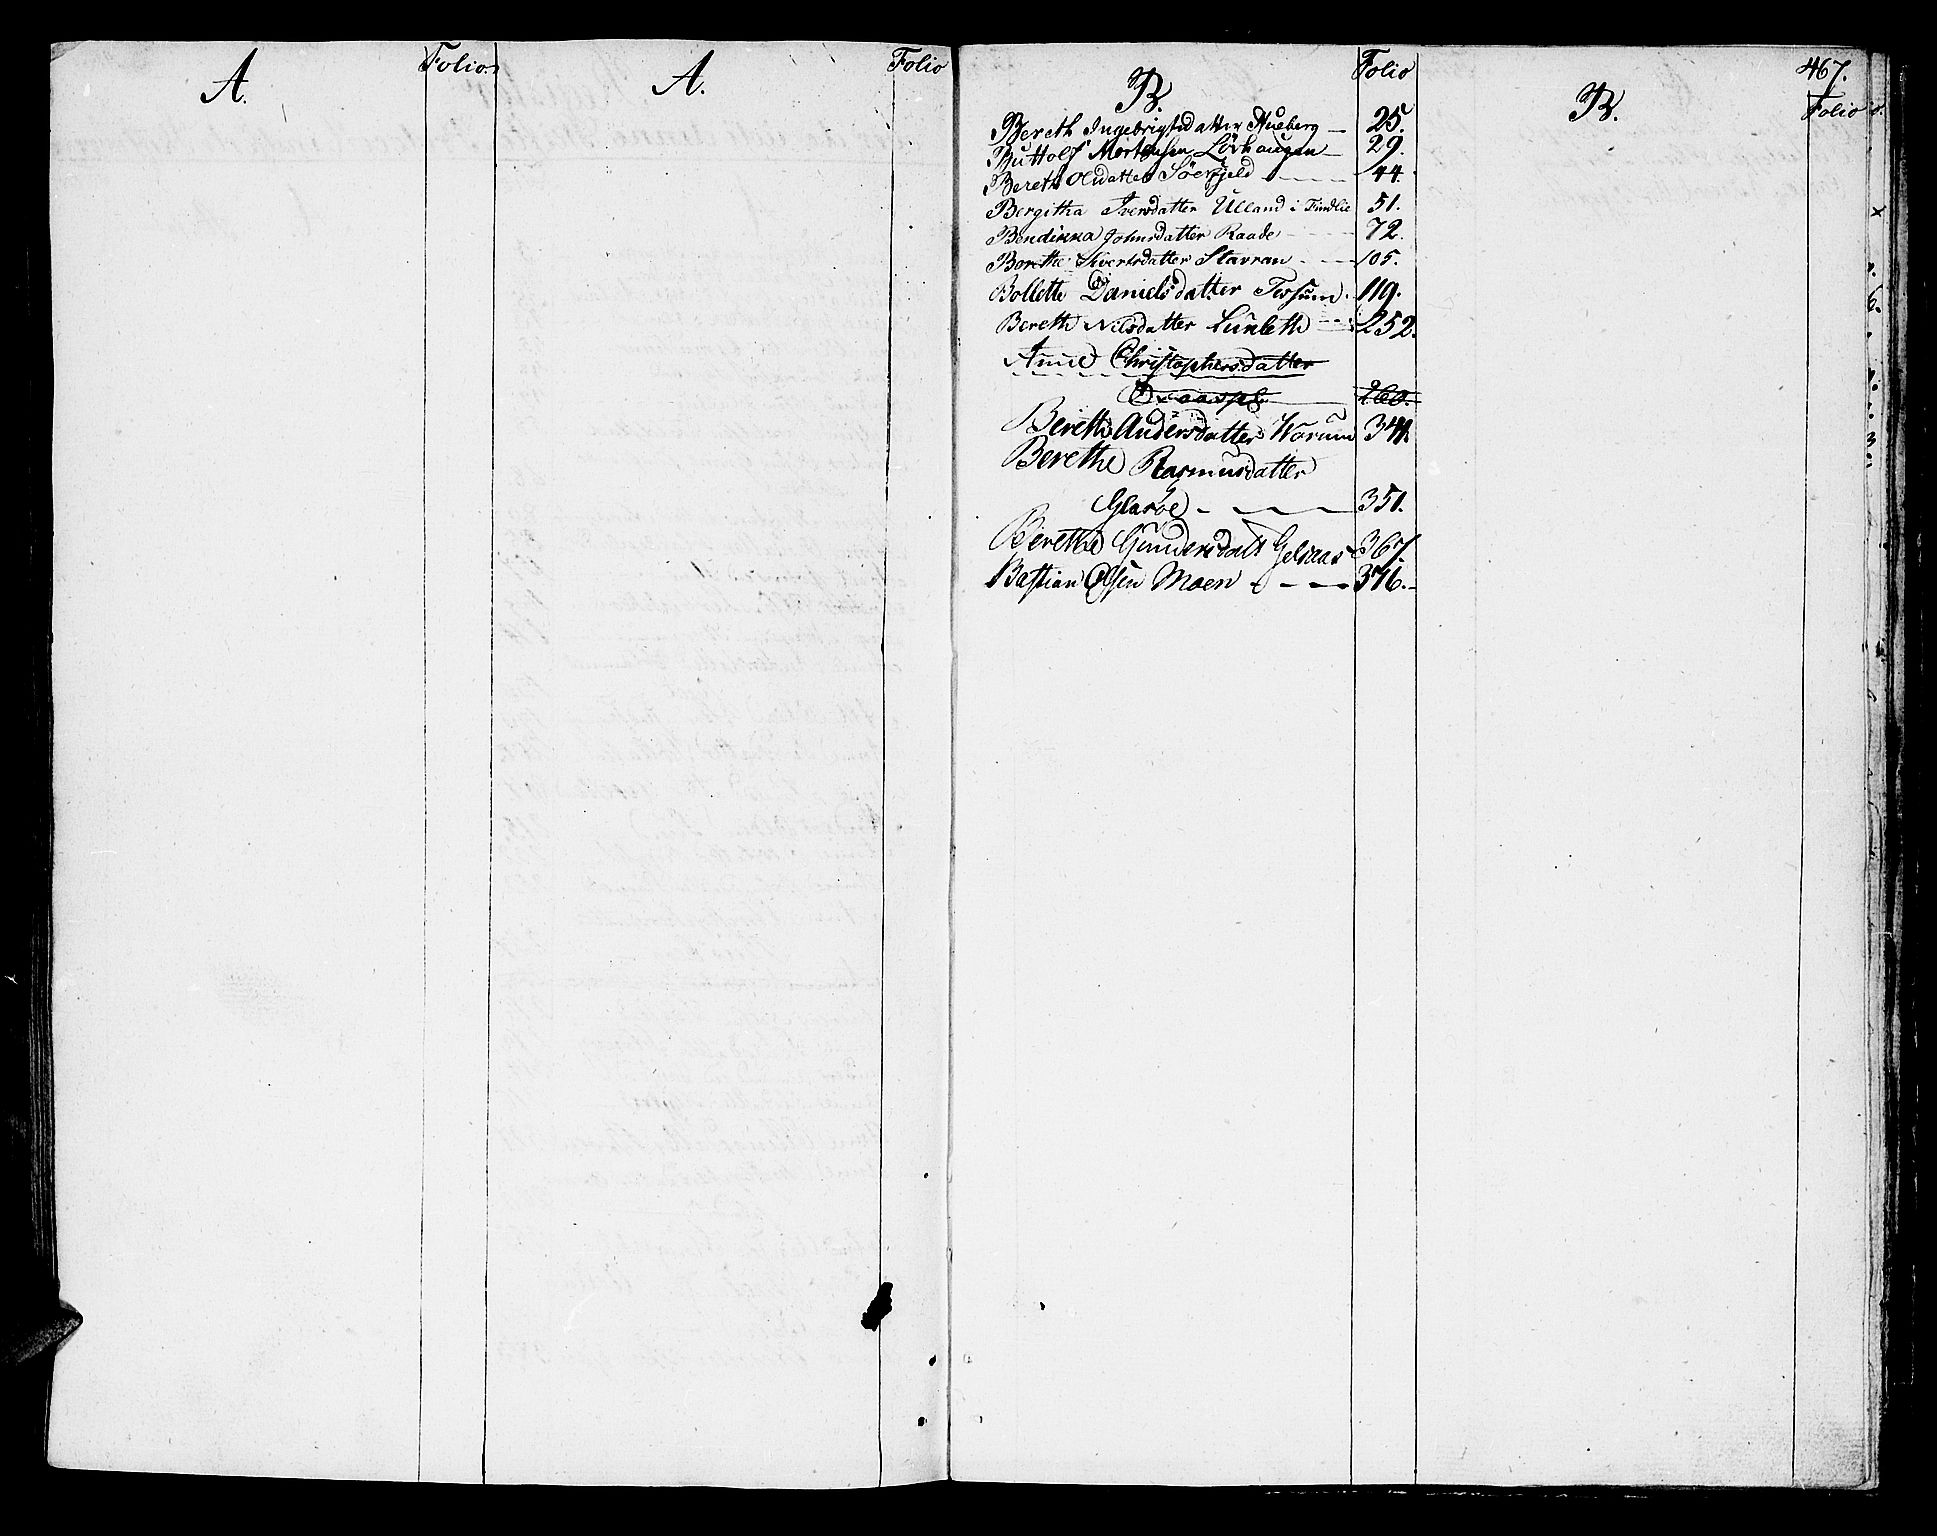 A. Folio.
A. Folio
B. Folio
Bereth Ingebrigtsdatter Aueberg 25.
Buttolf Mortensen Lövhaugen 29.
Bereth Olsdatter Söefjeld 44.
Bergitha Iversdatter Ulland i Findlie 51.
Bendikka Johnsdatter Raade 72.
Berethe Sivertsdatter Stavran 105.
Bollette Danielsdatter Tessum 119.
Bereth Nilsdatter 252.
Anne Christophersdatter
260.
Berethe Andersdatter Warum 341.
Berethe Rasmusdatter
Glaröe 351.
Berethe Gundersdatt Gelsaas 367.
Bastian Olsen Moen 376.
467.
B. Folio